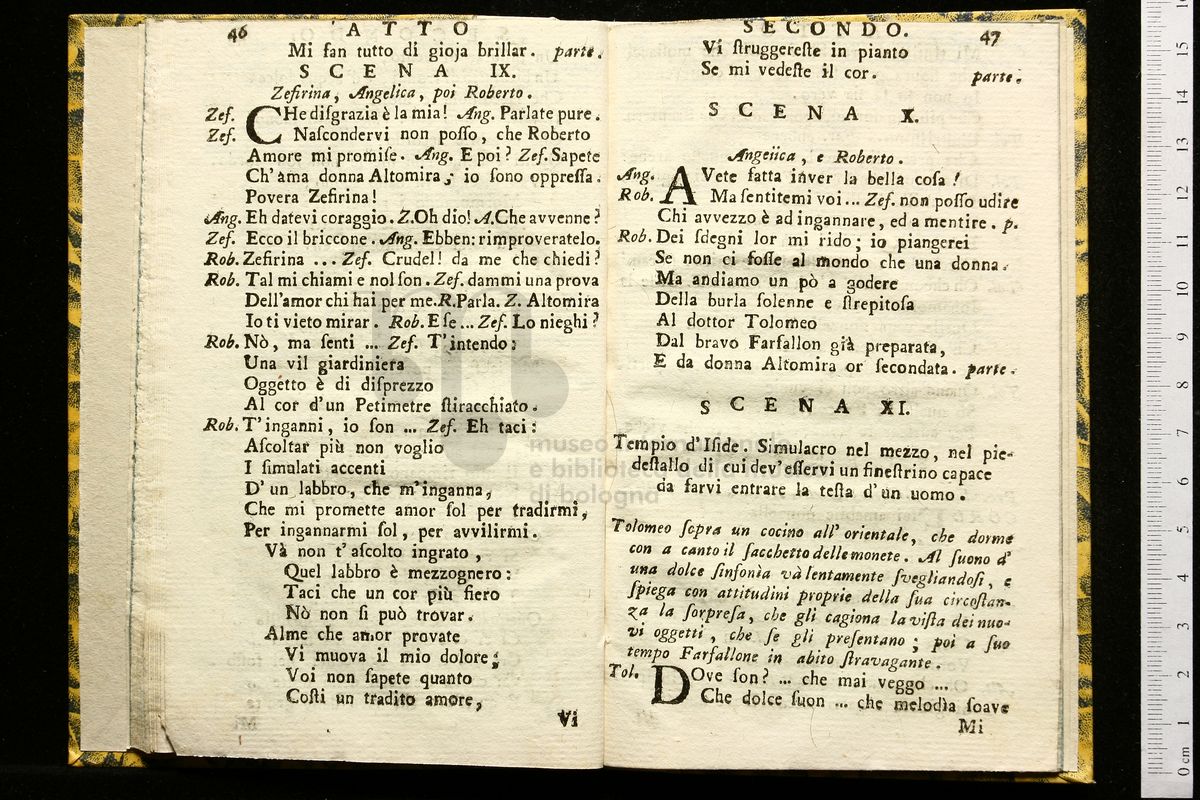 46 ATTO
Mi fan tutto di gioja brillar. parte.
SCENA IX.
Zefirina, Angelica, poi Roberto.
Zef. CHe disgrazia è la mia! Ang. Parlate pure.
Zef. Naſcondervi non poſſo, che Roberto
Amore mi promiſe. Ang. E poi? Zef. Sapete
Ch'ama donna Altomira; io ſono oppreſſa.
Povera Zefirina!
Ang. Eh datevi coraggio. Z. Oh dio! A. Che avvenne?
Zef. Ecco il briccone. Ang. Ebben: rimproveratelo.
Rob. Zefirina ... Zef. Crudel! da me che chiedi?
Rob. Tal mi chiami e nol ſon. Zef. dammi una prova
Dell'amor chi hai per me. R. Parla. Z. Altomira
Io ti vieto mirar. Rob. E ſe ... Zef. Lo nieghi?
Rob. Nò, ma ſenti ... Zef. T'intendo:
Una vil giardiniera
Oggètto è di diſprezzo
Al cor d'un Petimetre ſtiracchiato.
Rob. T'inganni, io ſon ... Zef. Eh taci:
Aſcoltar più non voglio
I ſimulati accenti
D'un labbro, che m'inganna,
Che mi promette amor ſol per tradirmi,
Per ingannarmi ſol, per avvilirmi.
Và non t'aſcolto ingrato,
Quel labbro è mezzognero:
Taci che un cor più fiero
Nò non ſi può trovar.
Alme che amor provate
Vi muova il mio dolore;
Voi non ſapete quanto
Coſti un tradito amore,
Vi
SECONDO. 47
Vi ſtruggereſte in pianto
Se mi vedeſte il cor. parte.
SCENA X.
Angelica, e Roberto.
Ang. AVete fatta inver la bella coſa!
Rob. Ma ſentitemi voi ... Zef. non poſſo udire
Chi avvezzo è ad ingannare, ed a mentire. p.
Rob. Dei ſdegni lor mi rido; io piangerei
Se non ci foſſe al mondo che una donna.
Ma andiamo un pò a godere
Della burla ſolenne e ſtrepitoſa
Al dottor Tolomeo
Dal bravo Farfallon già preparata,
E da donna Altomira or ſecondata. parte.
SCENA XI.
Tempio d'Iſide. Simulacro nel mezzo, nel pie-
deſtallo di cui dev'eſſervi un fineſtrino capace
da farvi entrare la teſta d'un uomo.
Tolomeo ſopra un cocino all'orientale, che dorme
con a canto il ſacchetto delle monete. Al ſuono d'
una dolce ſinfonìa và lentamente ſvegliandoſi, e
ſpiega con attitudini proprie della ſua circoſtan-
za la ſorpreſa, che gli cagiona la viſta dei nuo-
vi oggetti, che ſe gli preſentano; poi a ſuo
tempo Farfallone in abito ſtravagante.
Tol. DOve ſon? ... che mai veggo ...
Che dolce ſuon ... che melodìa ſoave
Mi
museo internazionale
e biblioteca della musica
di bologna